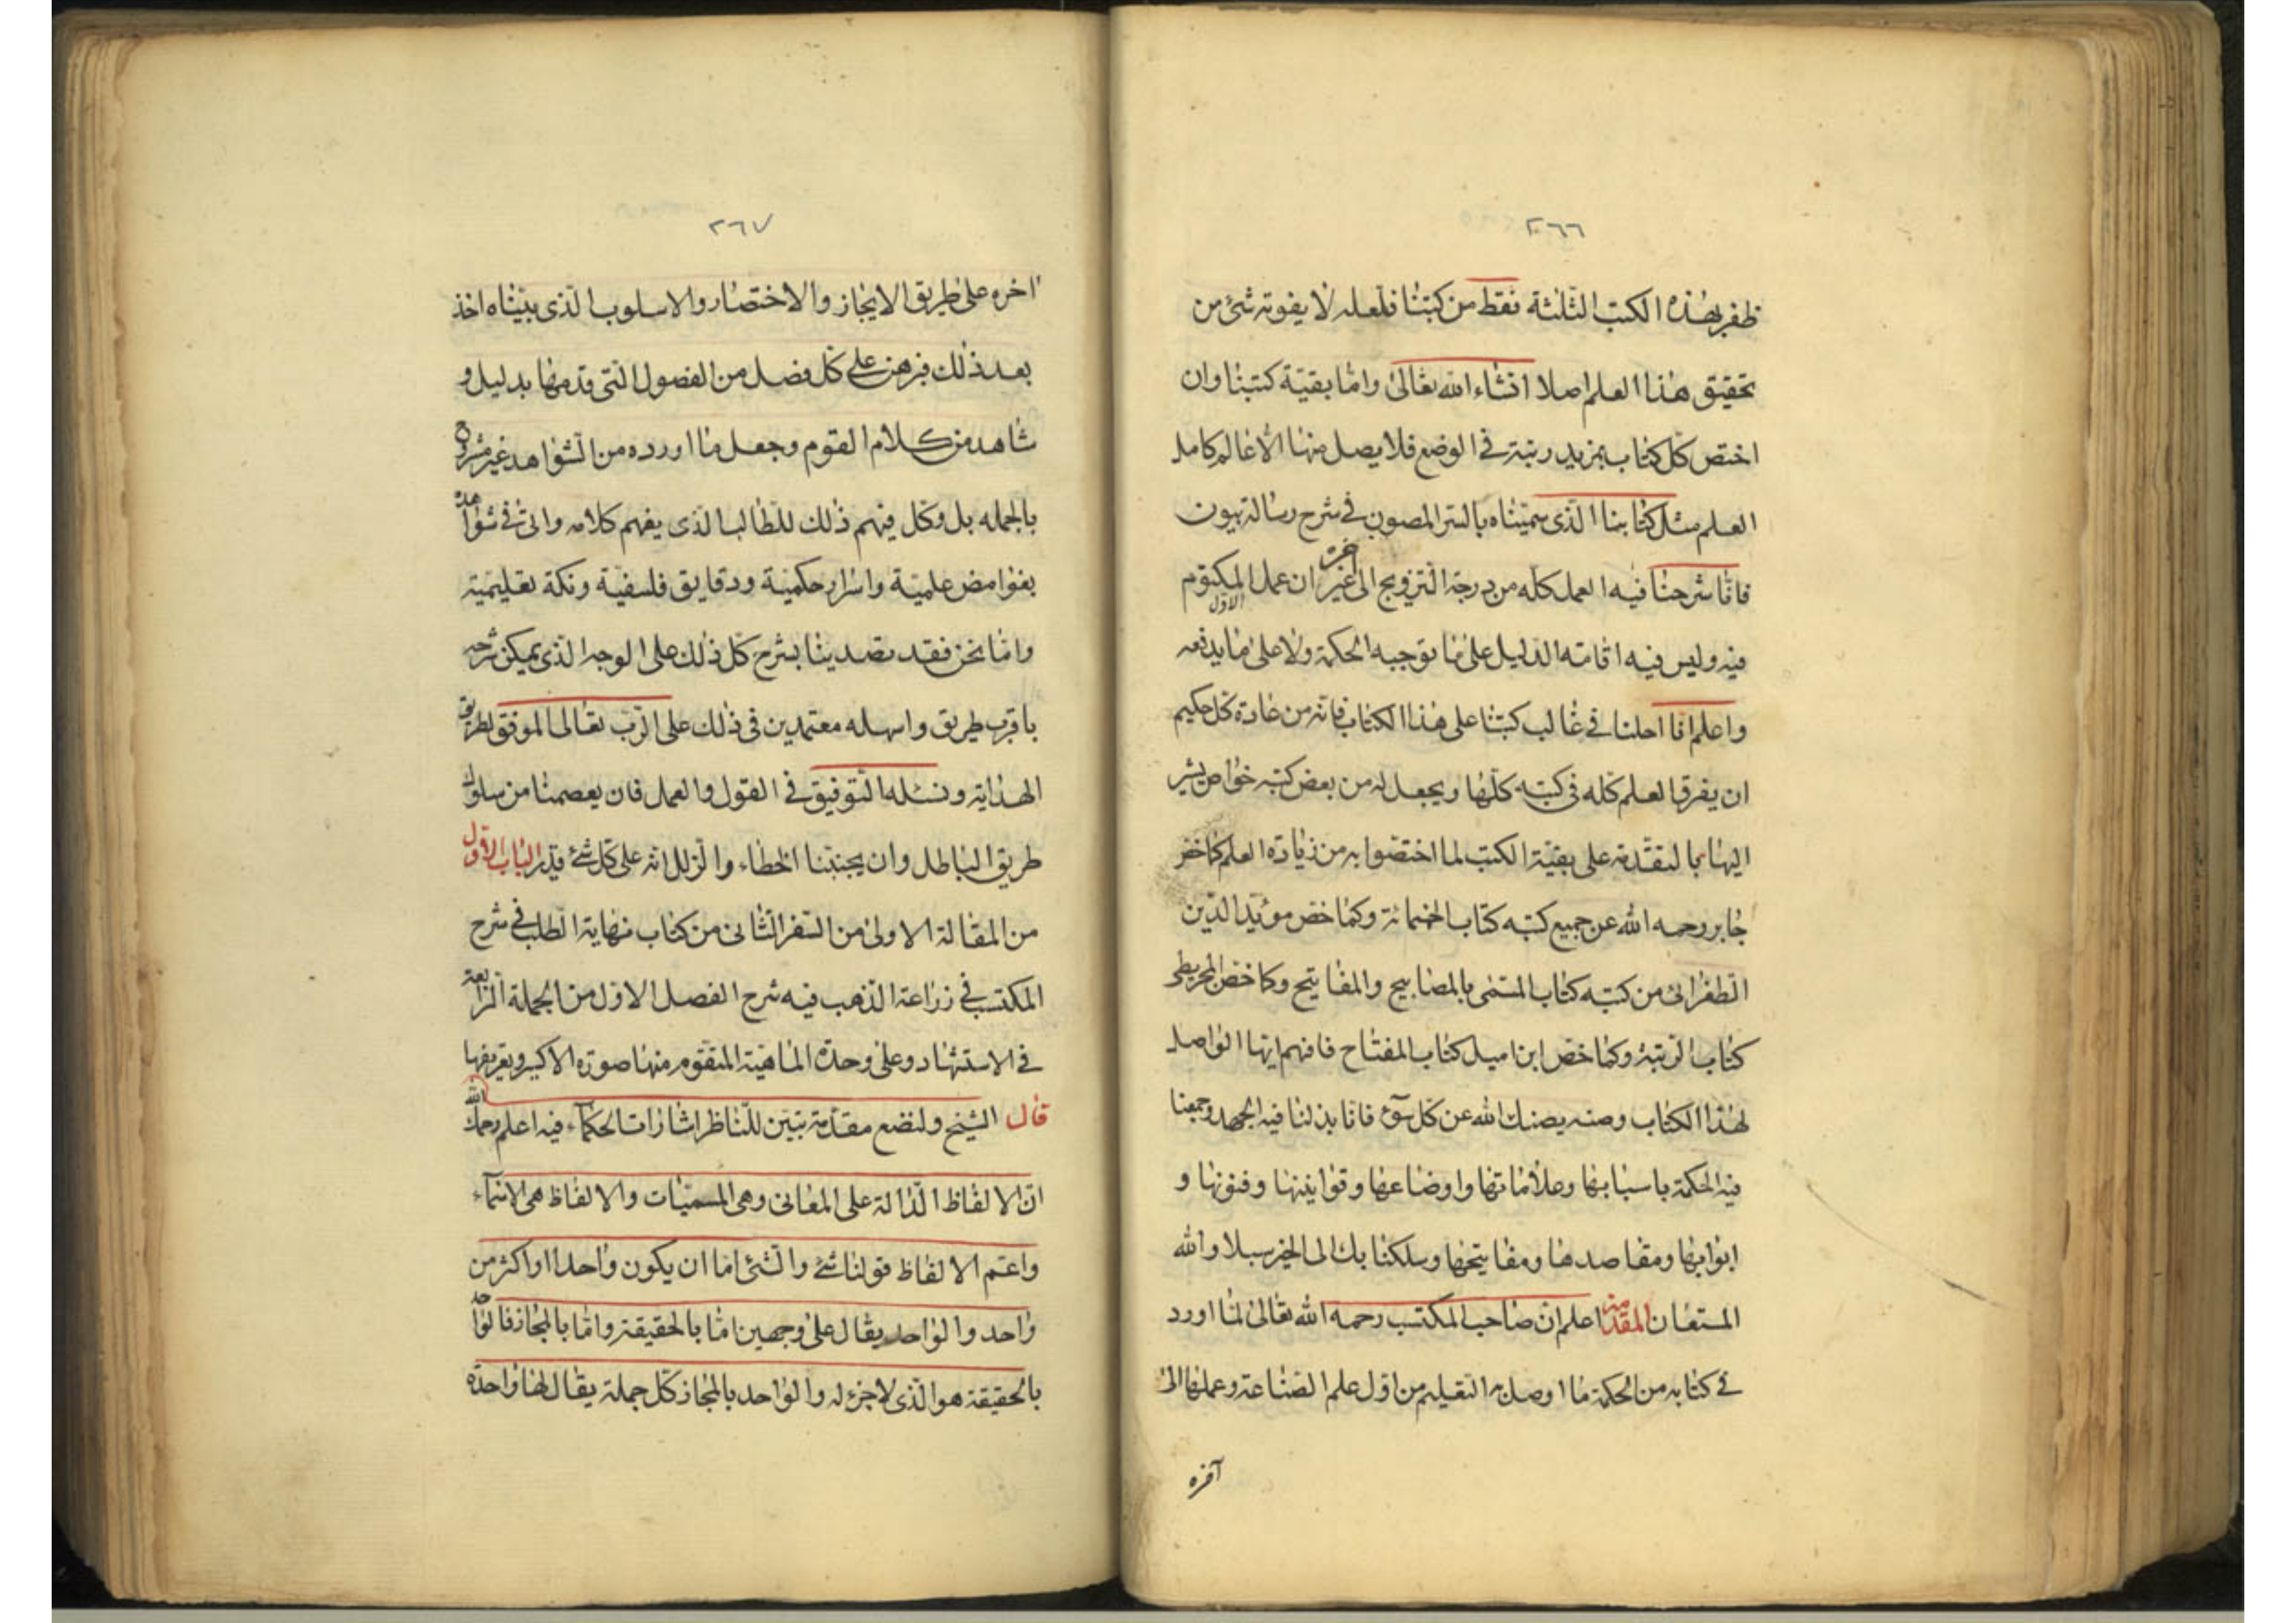 ٢٦٦
ظفر بهذه الكتب الثلثة فقط من كتبنا فلعله لا يفوته شئ من
تحقيق هذا العلم اصلا انشاء الله تعالى واما بقية كتبنا وان
اختص كل كتاب بمزيد رتبة فى الوضع فلا يصل منها الا عالم كامل
العلم مثل كتابنا الذى سميناه بالسر المصون فى شرح رسالة بيون
فانا شرحنا فيه العمل كله من درجة التزويج الى اخره غير ان عمل الاول المكتوم
فيه وليس فيه اقامته الدليل على ما توجبه الحكمة ولا على ما يدفعه
واعلم انا احلنا فى غالب كتبنا على هذا الكتاب فانه من عادة كل حكيم
ان يفرق العلم كله فى كتبه كلها ويجعل له من بعض كتبه خواص يشير
اليها بالتقدمة على بقية الكتب لما اختصوا به من زيادة العلم كما خص
جابر رحمه الله عن جميع كتبه كتاب الخمسمائة وكما خص مويد الدين
الطغرائى من كتبه كتاب المسمى بالمصابيح والمفاتيح وكما خص المجريطى
كتاب الرتبة وكما خص ابن اميل كتاب المفتاح فافهم ايها الواصل
لهذا الكتاب وصنه يصنك الله عن كل سوء فانا بذلنا فيه الجهد وجمعنا
فيه الحكمة باسبابها وعلاماتها واوضاعها وقوانينها وفنونها و
ابوابها ومقاصدها ومفاتيحها وسلكنا بك الى الخير سبلا والله
المستعان المقدمة اعلم ان صاحب المكتسب رحمه الله تعالى لما اورد
فى كتابه من الحكمة ما اوصل به التعليم من اول علم الصناعة وعملها الى
آخره
٢٦٧
اخره على طريق الايجاز والاختصار والاسلوب الذى بيناه اخذ
بعد ذلك فبرهن على كل فصل من الفصول التى قدمها بدليل و
شاهد من كلام القوم وجعل ما اورده من الشواهد غير مشروح
بالجمله بل وكل فيهم ذلك للطالب الذى يفهم كلامه واتى فى شواهده
بغوامض علمية واسرار حكمية ودقايق فلسفية ونكة تعليمية
واما نحن فقد تصدينا بشرح كل ذلك على الوجه الذى يمكن شرحه
باقرب طريق واسهله معتمدين فى ذلك على الرب تعالى الموفق لطريق
الهداية ونسئله التوفيق فى القول والعمل فان يعصمنا من سلوك
طريق الباطل وان يجنبنا الخطاء والزلل انه على كل شئ قدير الباب الاول
من المقالة الاولى من السفر الثانى من كتاب نهاية الطلب فى شرح
المكتسب فى زراعة الذهب فيه شرح الفصل الاول من الجملة الرابعة
فى الاستشهاد وعلى وحدة الماهية المتقوم منها صورة الاكسير وتعريفها
قال الشيخ ولنضع مقدمة تبين للناظر اشارات الحكماء فيه اعلم رحمك الله
ان الالفاظ الدالة على المعانى وهى المسميات والالفاظ هى الاسماء
واعم الالفاظ قولنا شئ والشئ اما ان يكون واحدا او اكثر من
واحد والواحد يقال على وجهين اما بالحقيقة واما بالمجاز فالواحد
بالحقيقة هو الذى لا جزء له والواحد بالمجاز كل جملة يقال لها واحدة